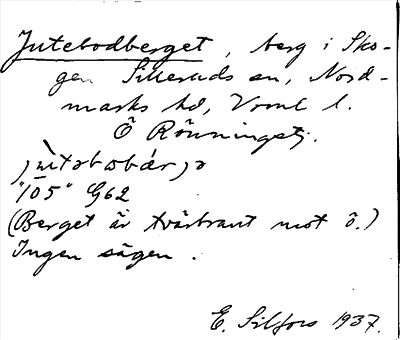 Jutebodberget, berg i Sko-
gen Silleruds sn, Nord-
marks hd, Vrml l.
Ö Rönningstj.
"105" G62
(Berget är tvärbrant mot ö.)
Ingen sägen.
E. Silfors 1937.